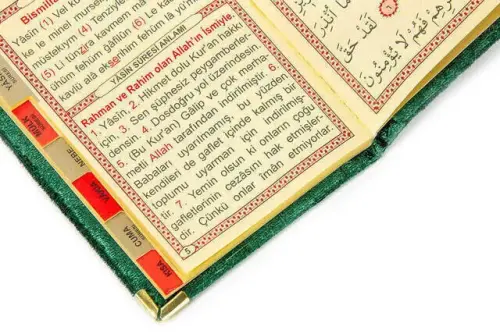 Bismillâ
Yâsîn (1) Vel kur
ke le minel mursel
(4) Tenzîlel
müstekıym
(5) Li tunzira kavmem mâ
ühüm fehüm ğâfilûn (6) Le ka
kavlü alâ ekserihim fehüm lâ yü'm
YÂSİN SÛRESİ ANLAMI
Rahman ve Rahim olan Allah'ın İsmiyle.
1. Yâsin. 2. Hikmet dolu Kur'an hakkı
için 3. Sen şüphesiz peygamberler-
densin. 4. Dosdoğru yol üzerindesin.
5. (Bu Kur'an) Galip ve çok merha-
metli Allah tarafından indirilmiştir. 6.
Babaları uyarılmamış, bu yüzden
kendileri de gaflet içinde kalmış bir
toplumu uyarman için indirilmiş-
tir. 7. Yemin olsun ki onların çoğu
gafletlerinin cezâsını hak etmişler-
dir. Çünkü onlar îmân etmiyorlar.
5
لَقَدْ حَقَّ
فَهُمْ لَا يُؤْمِنُونَ
YASİN
MÜLK
NEBE
VAKIA
CUMA
KISA